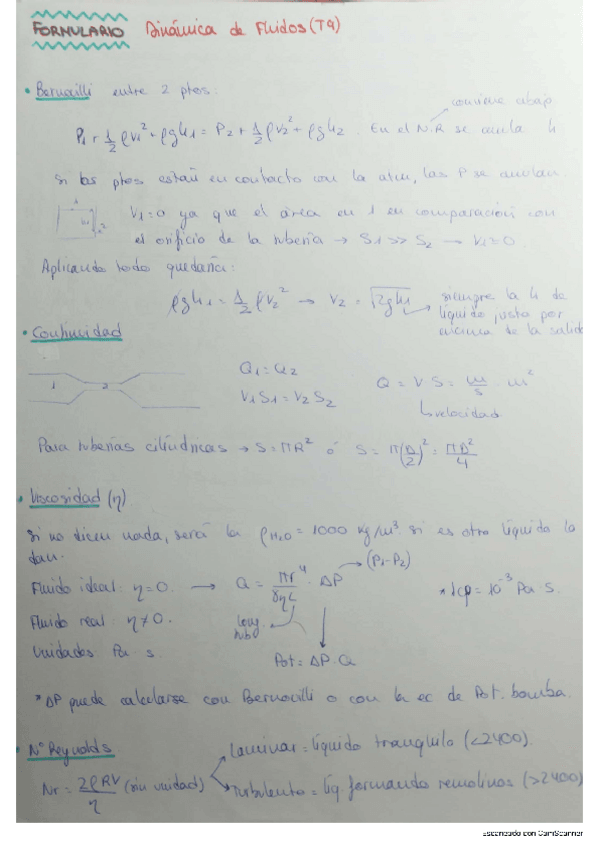 FORMULARIO Dinámica de Fluidos (T9)
• Bernouilli entre 2 ptos:
conviene abajo
P1 + 1/2 ρv1² + ρgh1 = P2 + 1/2 ρv2² + ρgh2. En el N.R se anula h
Si los ptos están en contacto con la atm, las P se anulan
V1=0 ya que el área en 1 en comparación con
el orificio de la tubería → S1 >> S2 → V1=0.
Aplicando todo quedaría:
ρgh1 = 1/2 ρv2² → V2 = √2gh1 siempre la h de
líquido justo por
encima de la salida
• Continuidad
1 2
Q1 = Q2
V1S1 = V2S2
Q = V S = m/s · m²
↳ velocidad
Para tuberías cilíndricas → S = πR² ó S = π(D/2)² = πD²/4
• Viscosidad (η)
Si no dicen nada, será la ρH2O = 1000 kg/m³ si es otro líquido lo
dan.
Fluido ideal: η=0. → Q = πr⁴/8ηL · ΔP → (P1-P2) * 1cp = 10⁻³ Pa·s.
Fluido real: η≠0.
long tubo
Unidades Pa·s
Pot = ΔP·Q
*ΔP puede calcularse con Bernouilli o con la ec de Pot. bomba.
• Nº Reynolds
Laminar = líquido tranquilo (<2400).
Nr = 2ρRV/η (sin unidad)
Turbulento = líq. formando remolinos (>2400)
Escaneado con CamScanner